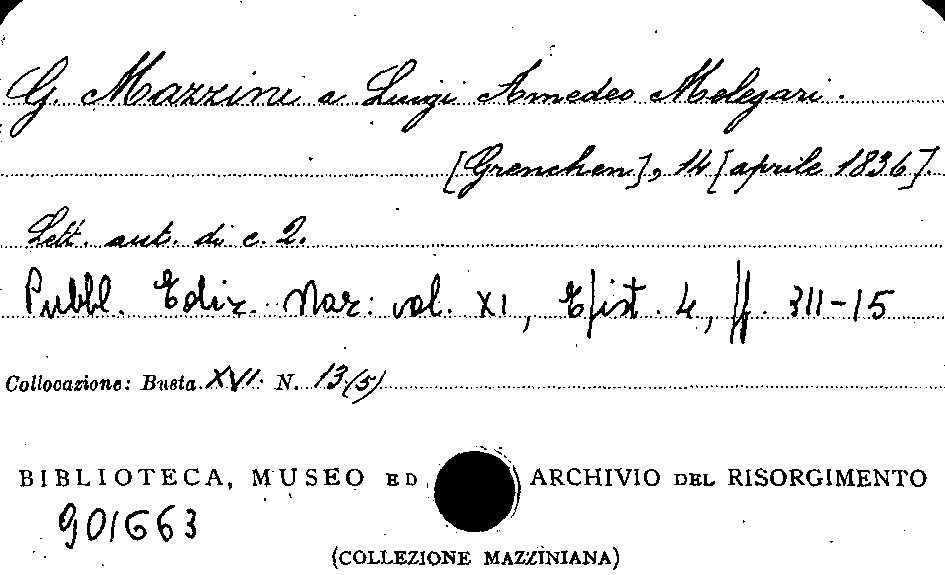 G. Mazzini a Luigi Amedeo Melegari.
[Grenchen], 14 [aprile 1836].
Lett. aut. di c. 2.
Pubbl. Ediz. Naz: vol. XI, Epist. 4, pp. 311-15
Collocazione: Busta XVI. N. 13(5)
BIBLIOTECA, MUSEO ED ARCHIVIO DEL RISORGIMENTO
901663
(COLLEZIONE MAZZINIANA)